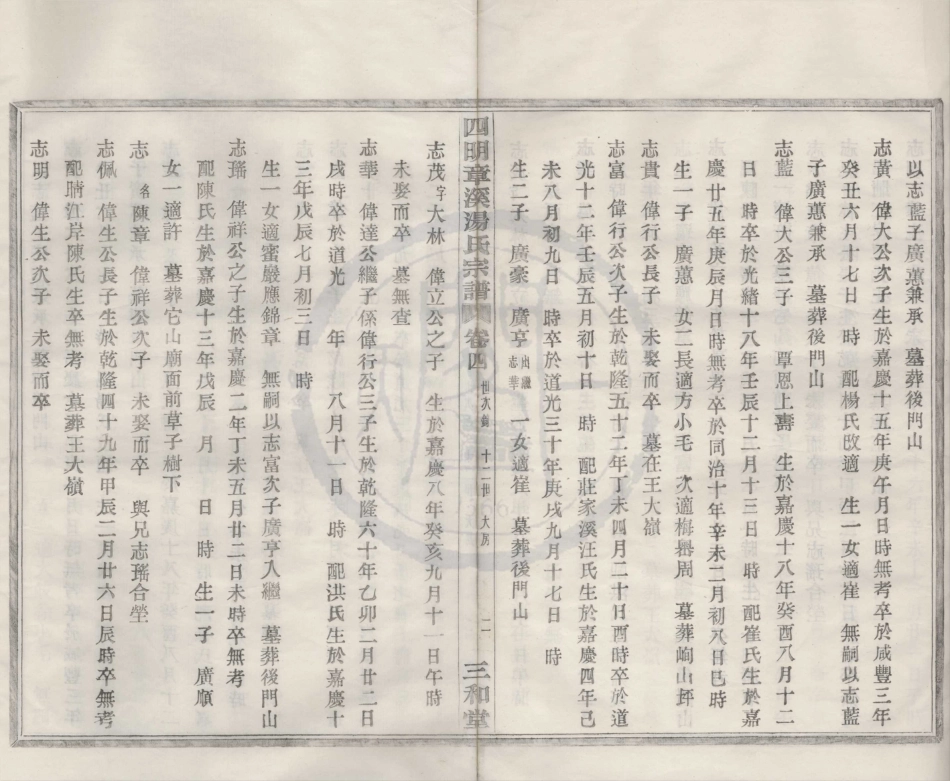 以志藍子廣蕙兼承 墓葬後門山
志黃 偉大公次子生於嘉慶十五年庚午月日時無考卒於咸豐三年
癸丑六月十七日 時 配楊氏改適 生一女適崔 無嗣以志藍
子廣蕙兼承 墓葬後門山
志藍 偉大公三子 覃恩上壽 生於嘉慶十八年癸酉八月十二
日 時卒於光緒十八年壬辰十二月十三日 時 配崔氏生於嘉
慶廿五年庚辰月日時無考卒於同治十年辛未二月初八日巳時
生一子 廣蕙 女二長適方小毛 次適梅嶴周 墓葬峋山坪
志貴 偉行公長子 未娶而卒 墓在王大嶺
志富 偉行公次子生於乾隆五十二年丁未四月二十日酉時卒於道
光十二年壬辰五月初十日 時 配莊家溪汪氏生於嘉慶四年己
未八月初九日 時卒於道光三十年庚戌九月十七日 時
生二子 廣豪 廣亨出繼志華 一女適崔 墓葬後門山
四明章溪湯氏宗譜 卷四 世次錄 十二世 大房 二 三和堂
志茂字大林 偉立公之子 生於嘉慶八年癸亥九月十一日午時
未娶而卒 墓無查
志華 偉達公繼子係偉行公三子生於乾隆六十年乙卯二月廿二日
戌時卒於道光 年 八月十一日 時 配洪氏生於嘉慶十
三年戊辰七月初三日 時
生一女適蜜巖應錦章 無嗣以志富次子廣亨入繼 墓葬後門山
志瑤 偉祥公之子生於嘉慶二年丁未五月廿二日未時卒無考
配陳氏生於嘉慶十三年戊辰 月 日 時 生一子 廣順
女一適許 墓葬它山廟面前草子樹下
志 名陳章 偉祥公次子 未娶而卒 與兄志瑤合塋
志佩 偉生公長子生於乾隆四十九年甲辰二月廿六日辰時卒無考
配晴江岸陳氏生卒無考 墓葬王大嶺
志明 偉生公次子 未娶而卒